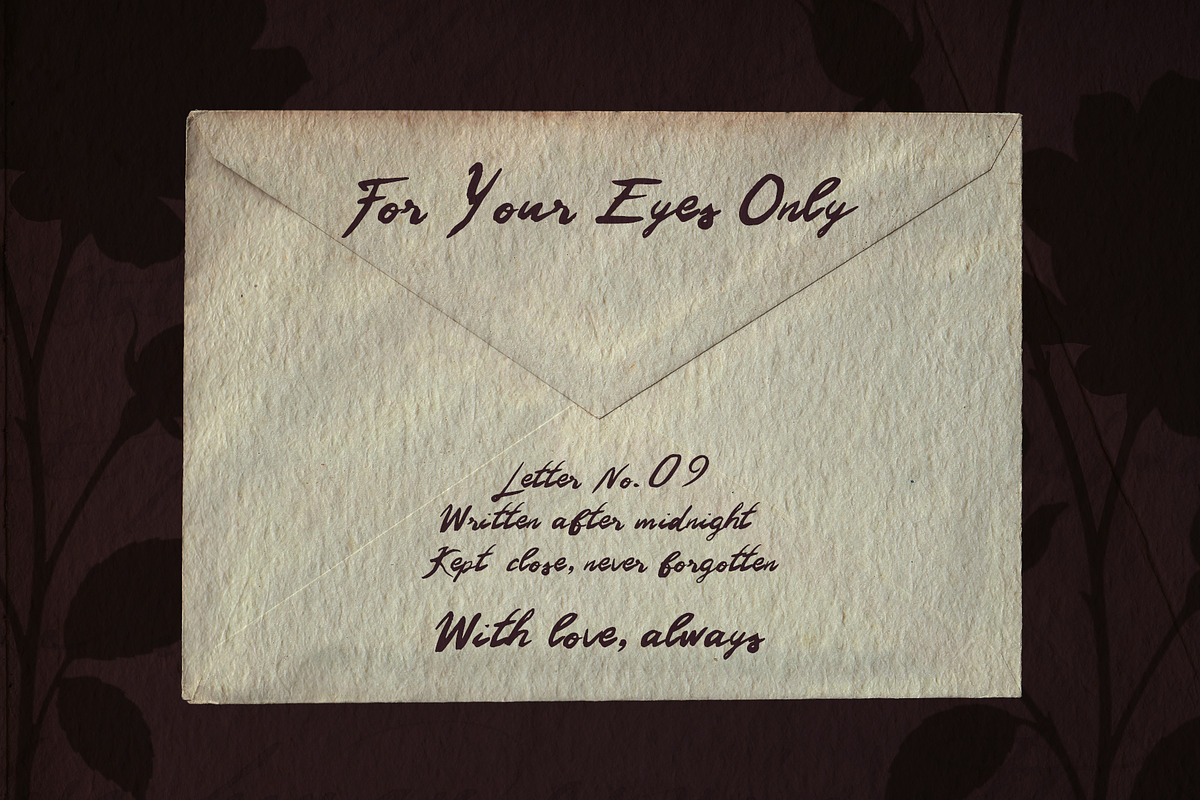 For Your Eyes Only
Letter No. 09
Written after midnight
Kept close, never forgotten
With love, always